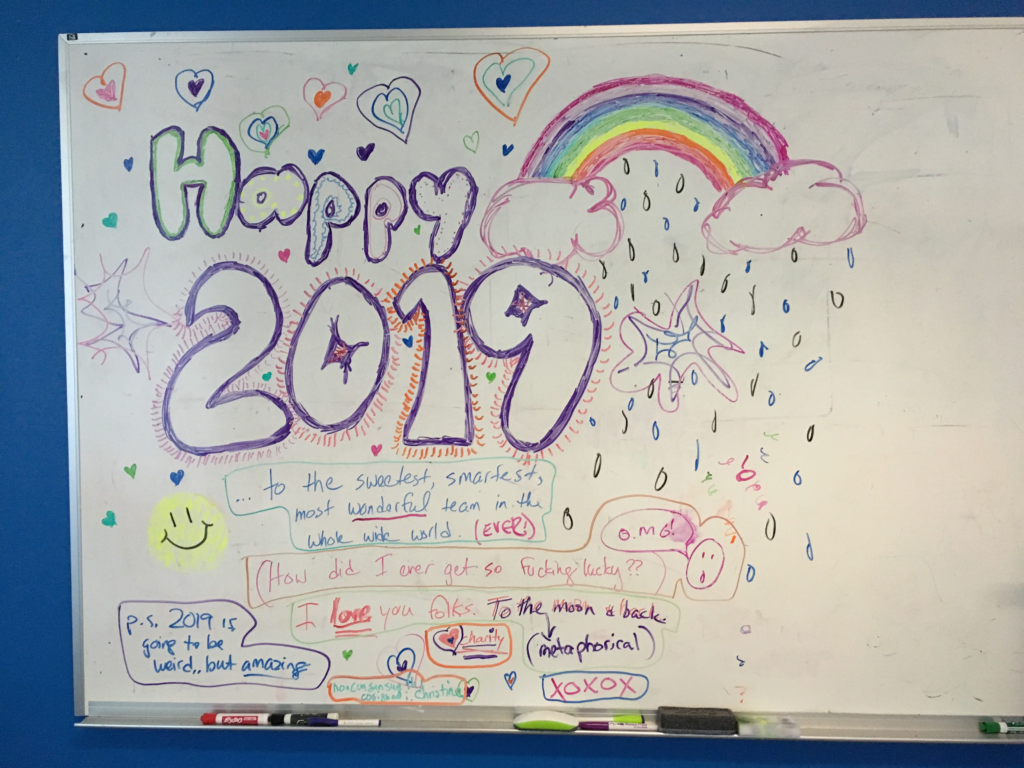 Happy
2019
... to the sweetest, smartest,
most wonderful team in the
whole wide world. (EVER!)
O.M.G!
(How did I ever get so fucking lucky??
I love you folks. To the moon & back.
(metaphorical)
charity
p.s. 2019 is
going to be
weird.. but amazing
christina
XOXOX
EXPO